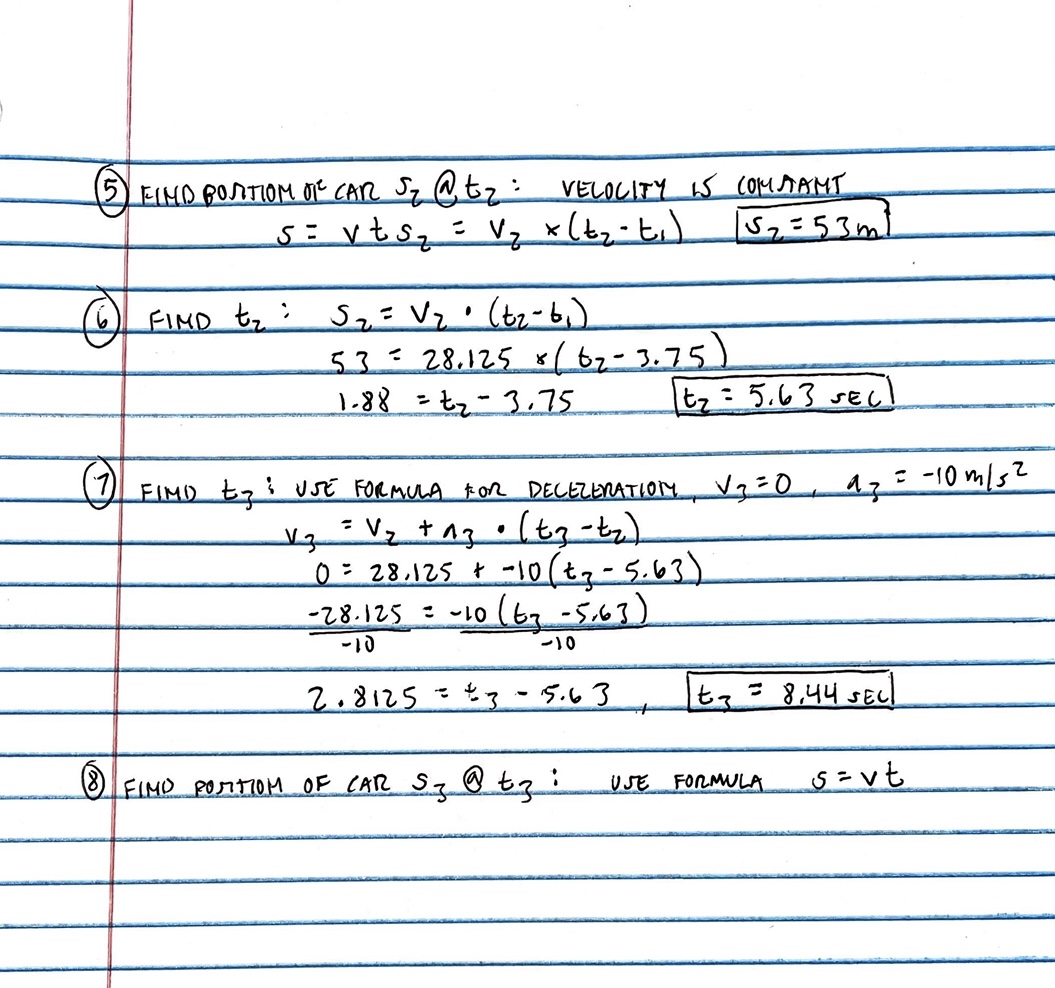 ⑤ FIND POSITION OF CAR S₂ @ t₂ : VELOCITY IS CONSTANT
S = v t S₂ = V₂ × (t₂ - t₁) S₂ = 53 m
⑥ FIND t₂ : S₂ = V₂ • (t₂ - t₁)
53 = 28.125 × ( t₂ - 3.75 )
1.88 = t₂ - 3.75 t₂ = 5.63 SEC
⑦ FIND t₃ : USE FORMULA FOR DECELERATION, V₃ = 0, a₃ = -10 m/s²
V₃ = V₂ + a₃ • (t₃ - t₂)
0 = 28.125 + -10 (t₃ - 5.63)
-28.125 = -10 (t₃ - 5.63)
-10 -10
2.8125 = t₃ - 5.63 , t₃ = 8.44 SEC
⑧ FIND POSITION OF CAR S₃ @ t₃ : USE FORMULA S = v t